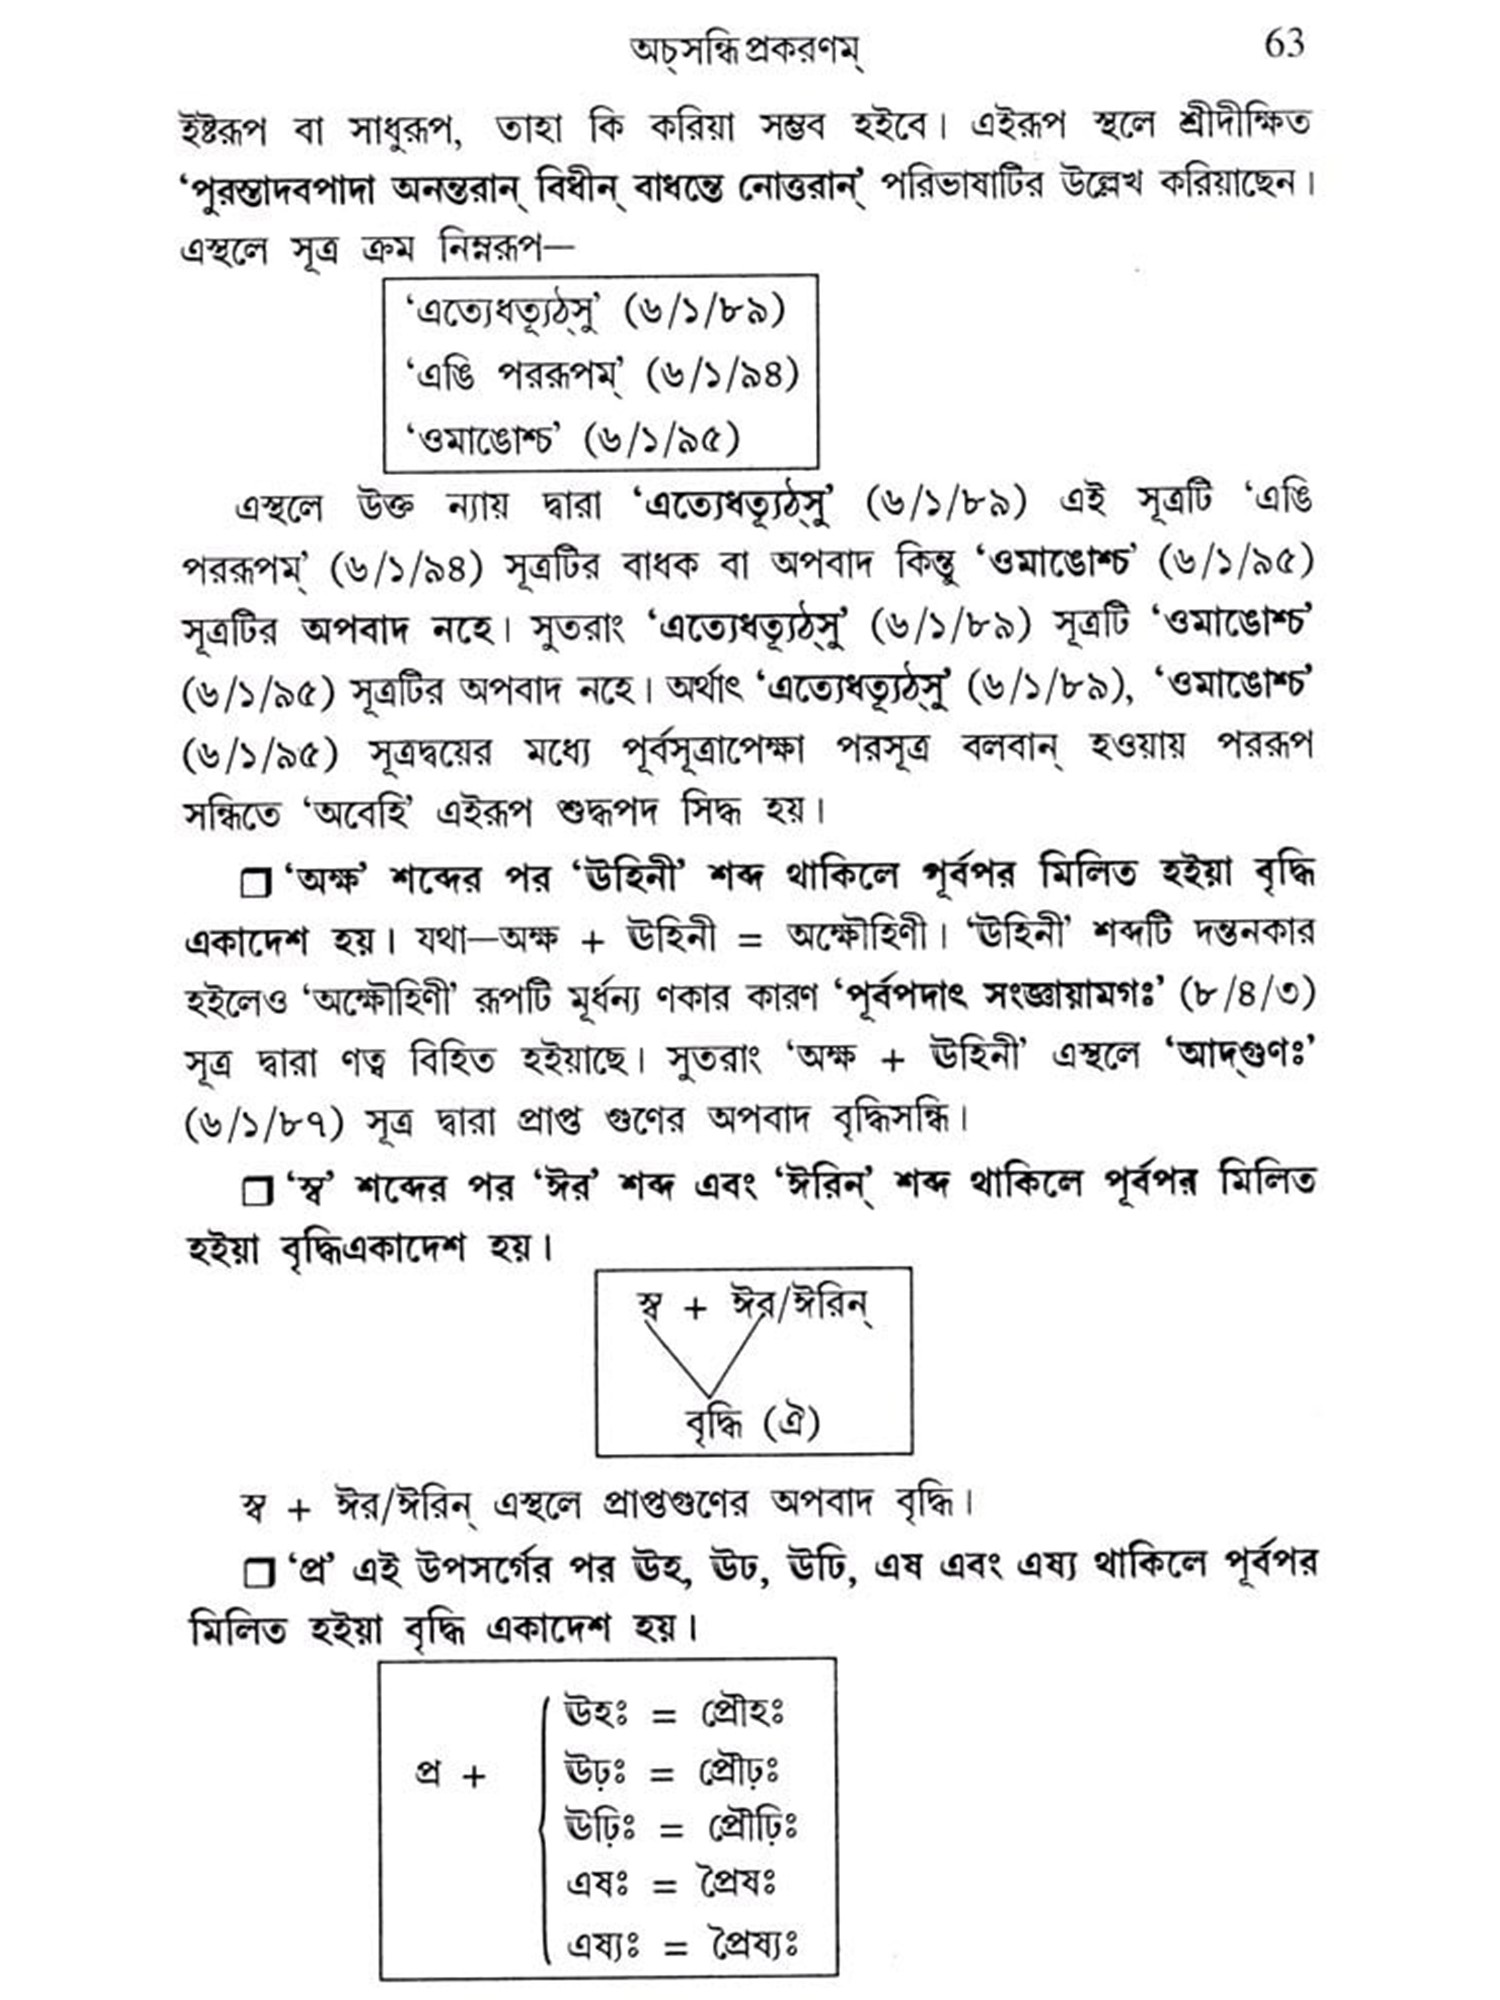 অচ্‌সন্ধিপ্রকরণম্ 63
ইষ্টরূপ বা সাধুরূপ, তাহা কি করিয়া সম্ভব হইবে। এইরূপ স্থলে শ্রীদীক্ষিত
‘পুরস্তাদবপাদা অনন্তরান্ বিধীন্ বাধন্তে নোত্তরান্’ পরিভাষাটির উল্লেখ করিয়াছেন।
এস্থলে সূত্র ক্রম নিম্নরূপ—
‘এত্যেধত্যূঠ্‌সু’ (৬/১/৮৯)
‘এঙি পররূপম্’ (৬/১/৯৪)
‘ওমাঙোশ্চ’ (৬/১/৯৫)
এস্থলে উক্ত ন্যায় দ্বারা ‘এত্যেধত্যূঠ্‌সু’ (৬/১/৮৯) এই সূত্রটি ‘এঙি
পররূপম্’ (৬/১/৯৪) সূত্রটির বাধক বা অপবাদ কিন্তু ‘ওমাঙোশ্চ’ (৬/১/৯৫)
সূত্রটির অপবাদ নহে। সুতরাং ‘এত্যেধত্যূঠ্‌সু’ (৬/১/৮৯) সূত্রটি ‘ওমাঙোশ্চ’
(৬/১/৯৫) সূত্রটির অপবাদ নহে। অর্থাৎ ‘এত্যেধত্যূঠ্‌সু’ (৬/১/৮৯), ‘ওমাঙোশ্চ’
(৬/১/৯৫) সূত্রদ্বয়ের মধ্যে পূর্বসূত্রাপেক্ষা পরসূত্র বলবান্ হওয়ায় পররূপ
সন্ধিতে ‘অবেহি’ এইরূপ শুদ্ধপদ সিদ্ধ হয়।
❒ ‘অক্ষ’ শব্দের পর ‘ঊহিনী’ শব্দ থাকিলে পূর্বপর মিলিত হইয়া বৃদ্ধি
একাদেশ হয়। যথা—অক্ষ + ঊহিনী = অক্ষৌহিণী। ‘ঊহিনী’ শব্দটি দন্তনকার
হইলেও ‘অক্ষৌহিণী’ রূপটি মূর্ধন্য ণকার কারণ ‘পূর্বপদাৎ সংজ্ঞায়ামগঃ’ (৮/৪/৩)
সূত্র দ্বারা ণত্ব বিহিত হইয়াছে। সুতরাং ‘অক্ষ + ঊহিনী’ এস্থলে ‘আদ্‌গুণঃ’
(৬/১/৮৭) সূত্র দ্বারা প্রাপ্ত গুণের অপবাদ বৃদ্ধিসন্ধি।
❒ ‘স্ব’ শব্দের পর ‘ঈর’ শব্দ এবং ‘ঈরিন্’ শব্দ থাকিলে পূর্বপর মিলিত
হইয়া বৃদ্ধিএকাদেশ হয়।
স্ব + ঈর/ঈরিন্
বৃদ্ধি (ঐ)
স্ব + ঈর/ঈরিন্ এস্থলে প্রাপ্তগুণের অপবাদ বৃদ্ধি।
❒ ‘প্র’ এই উপসর্গের পর ঊহ, ঊঢ, ঊঢি, এষ এবং এষ্য থাকিলে পূর্বপর
মিলিত হইয়া বৃদ্ধি একাদেশ হয়।
ঊহঃ = প্রৌহঃ
প্র + ঊঢ়ঃ = প্রৌঢ়ঃ
ঊঢ়িঃ = প্রৌঢ়িঃ
এষঃ = প্রৈষঃ
এষ্যঃ = প্রৈষ্যঃ